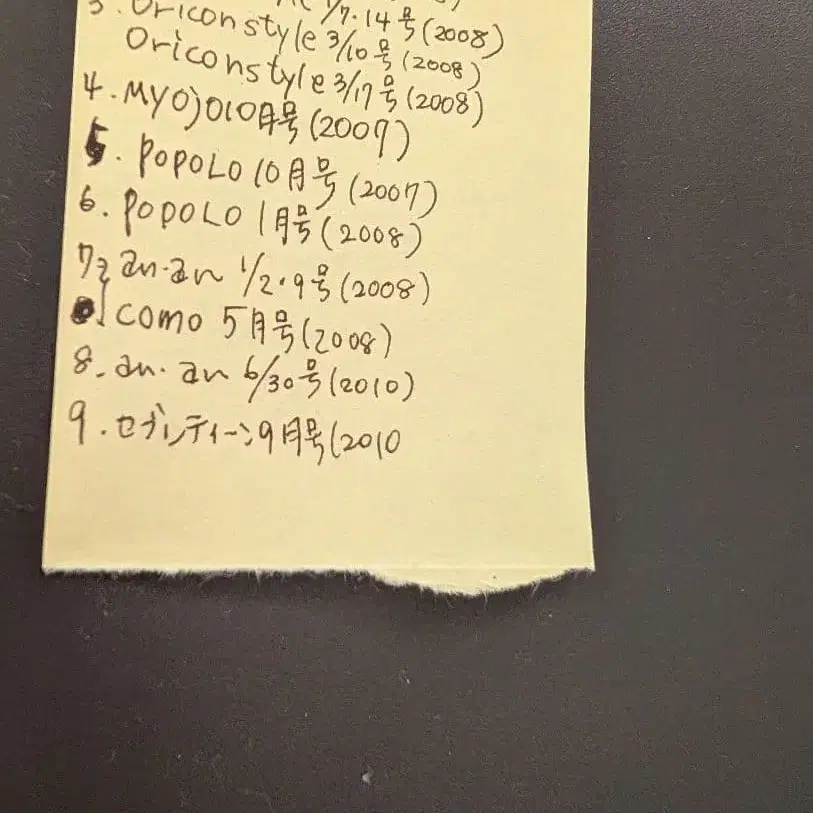 3. Oriconstyle 1/7・14号(2008)
Oriconstyle 3/10号(2008)
Oriconstyle 3/17号(2008)
4. MYOJO10月号(2007)
5. POPOLO 10月号(2007)
6. POPOLO 1月号(2008)
7 an・an 1/2・9号(2008)
como 5月号(2008)
8. an・an 6/30号(2010)
9. セブンティーン9月号(2010